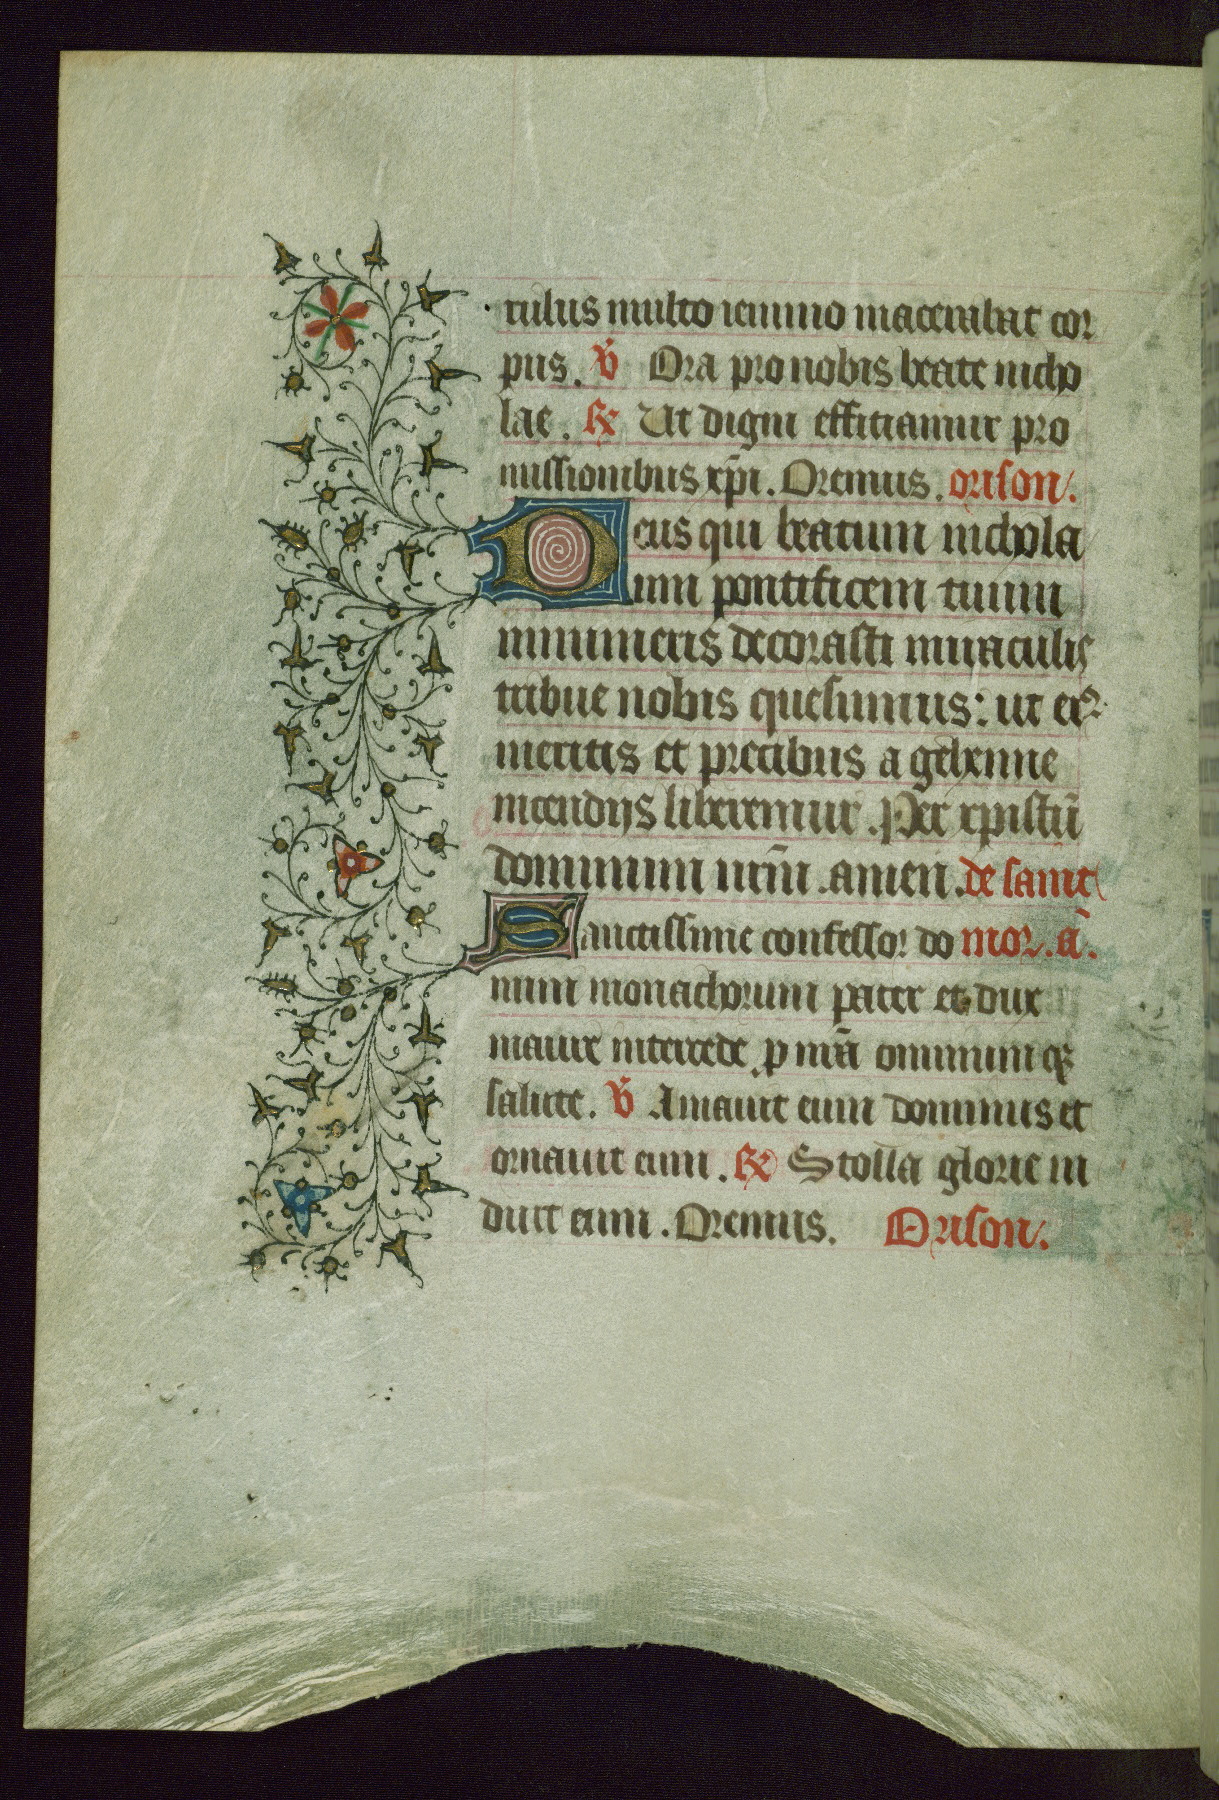 rulus multo ieiunio macerabat cor
pus. V̄ Ora pro nobis beate nicho
lae. R̸ Ut digni efficiamur pro
missionibus xp̄i. Oremus. orison.
Deus qui beatum nichola
um pontificem tuum
innumeris decorasti miraculis
tribue nobis quesumus: ut eiꝰ
meritis et precibus a gehenne
incendijs liberemur. Per xpistū
dominum nr̄m. amen. de saint
Sanctissime confessor do mor. ā.
mini monachorum pater et dux
maure intercede p nr̄a omnium qꝫ
salute. V̄ Amauit eum dominus et
ornauit eum. R̸ Stolla glorie in
duit eum. Oremus. Orison.